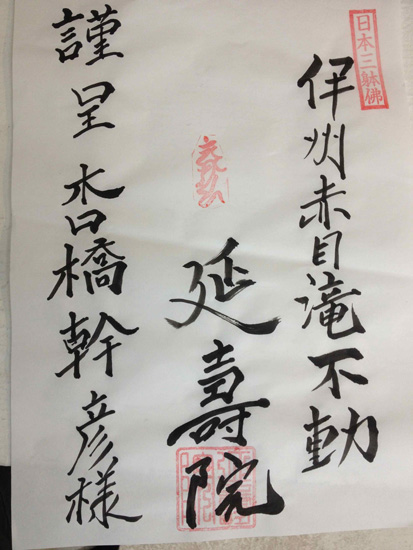 日本三躰佛
伊州赤目滝不動
延壽院
謹呈沓橋幹彦様